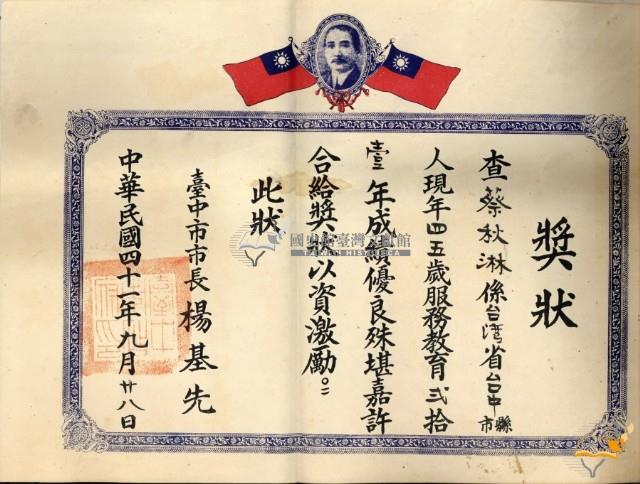 獎狀
查蔡秋淋係台灣省台中縣市
人現年四五歲服務教育貳拾
壹年成績優良殊堪嘉許
合給獎狀以資激勵。
此狀
臺中市市長楊基先
中華民國四十一年九月廿八日
國史館臺灣文獻館
TAIWAN HISTORICA